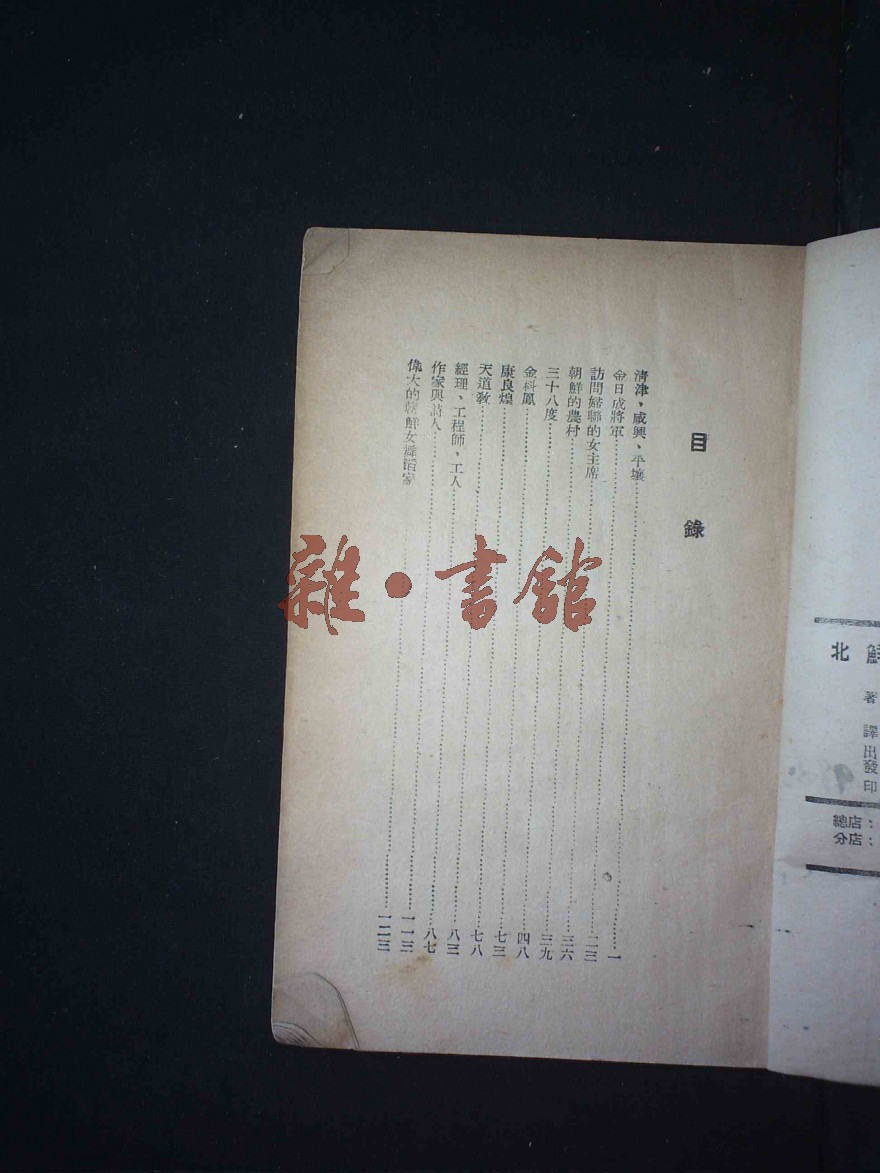 北鮮
著
譯
出
發
印
總店：
分店：
目錄
清津、咸興、平壤……一
金日成將軍……二三
訪問婦聯的女主席……三六
朝鮮的農村……三九
三十八度……四八
金科鳳……七三
康良煌……七八
天道教……八三
經理、工程師、工人……八七
作家與詩人……一一三
偉大的朝鮮女舞蹈家……一二三
雜·書館